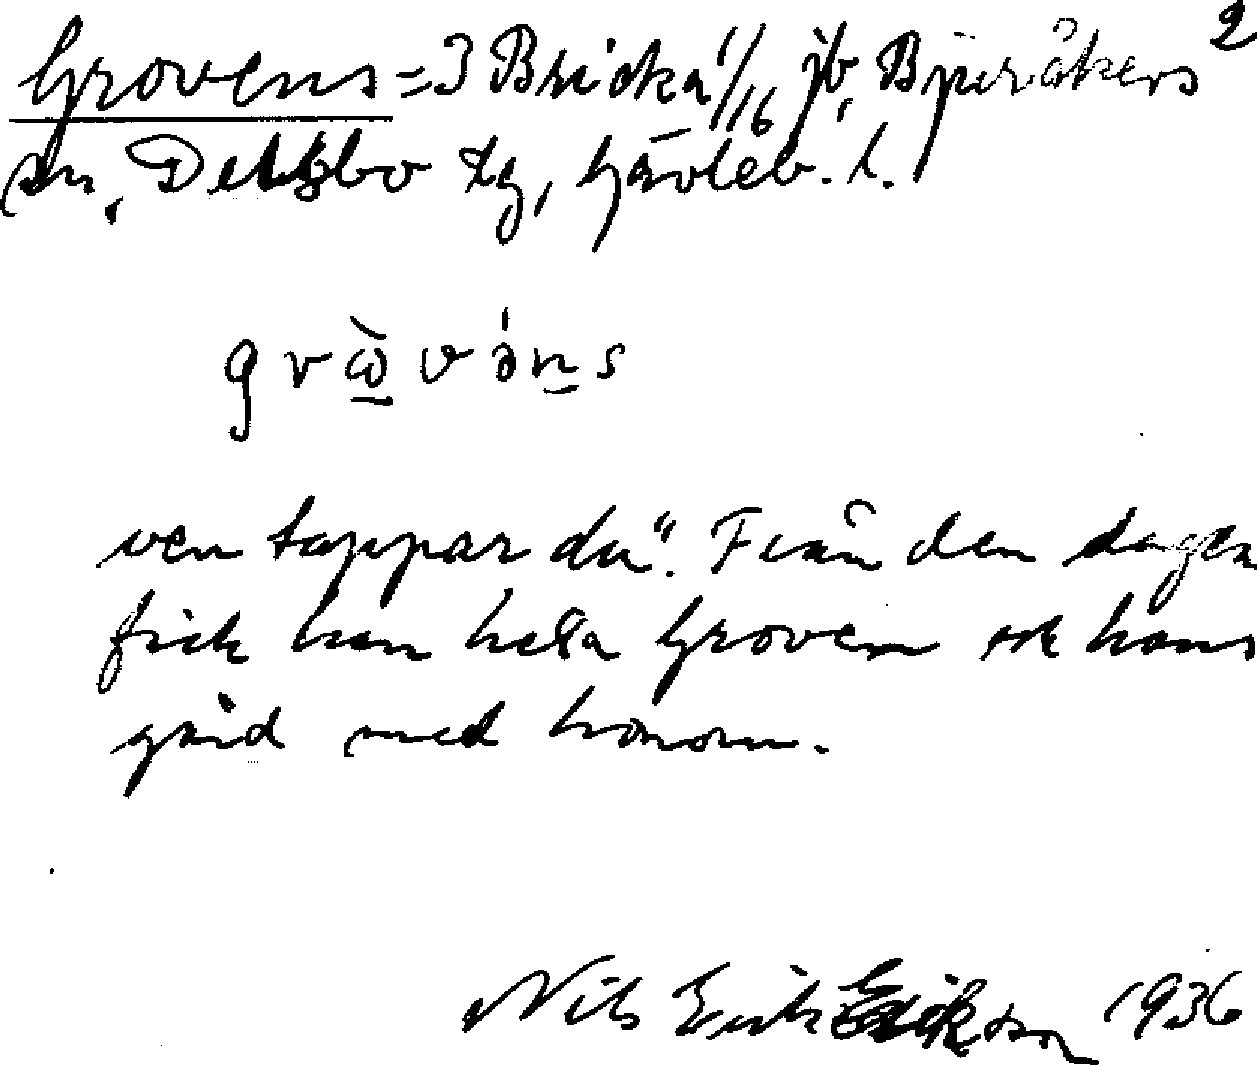 2
Grovens = 3 Bricka 1/16 jb, Bjuråkers
sn, Delsbo tg, Gävleb. l.
ven tappar du". Från den dagen
fick han heta Groven ok hans
gård med honom.
Nils Erik Erikson 1936